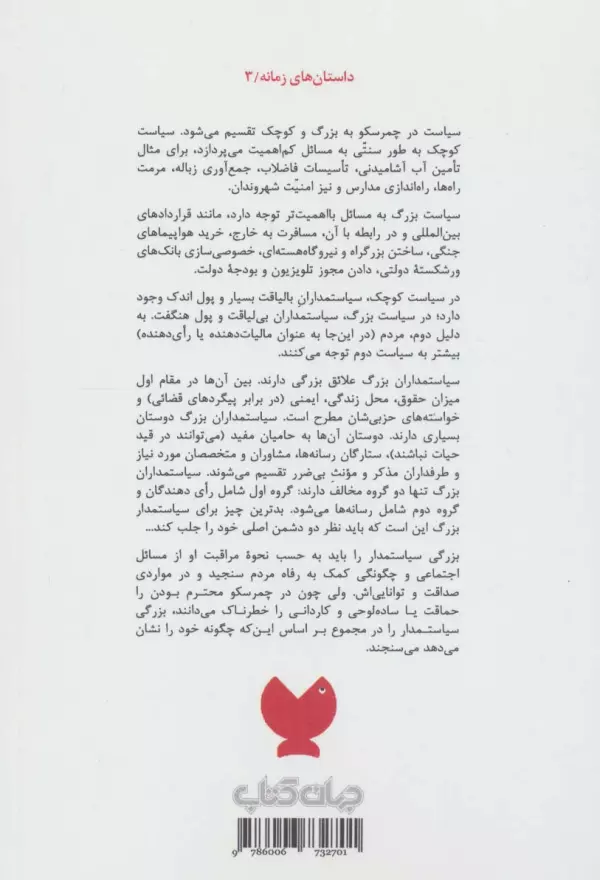 داستان‌های زمانه/۳
سیاست در چمرسکو به بزرگ و کوچک تقسیم می‌شود. سیاست
کوچک به طور سنتّی به مسائل کم‌اهمیت می‌پردازد، برای مثال
تأمین آب آشامیدنی، تأسیسات فاضلاب، جمع‌آوری زباله، مرمت
راه‌ها، راه‌اندازی مدارس و نیز امنیّت شهروندان.
سیاست بزرگ به مسائل بااهمیت‌تر توجه دارد، مانند قراردادهای
بین‌المللی و در رابطه با آن، مسافرت به خارج، خرید هواپیماهای
جنگی، ساختن بزرگراه و نیروگاه‌هسته‌ای، خصوصی‌سازی بانک‌های
ورشکستهٔ دولتی، دادن مجوز تلویزیون و بودجهٔ دولت.
در سیاست کوچک، سیاستمدارانِ بالیاقت بسیار و پول اندک وجود
دارد؛ در سیاست بزرگ، سیاستمداران بی‌لیاقت و پول هنگفت. به
دلیل دوم، مردم (در این‌جا به عنوان مالیات‌دهنده یا رأی‌دهنده)
بیشتر به سیاست دوم توجه می‌کنند.
سیاستمداران بزرگ علائق بزرگی دارند. بین آن‌ها در مقام اول
میزان حقوق، محل زندگی، ایمنی (در برابر پیگردهای قضائی) و
خواسته‌های حزبی‌شان مطرح است. سیاستمداران بزرگ دوستان
بسیاری دارند. دوستان آن‌ها به حامیان مفید (می‌توانند در قید
حیات نباشند)، ستارگان رسانه‌ها، مشاوران و متخصصان مورد نیاز
و طرفداران مذکر و مؤنثِ بی‌ضرر تقسیم می‌شوند. سیاستمداران
بزرگ تنها دو گروه مخالف دارند: گروه اول شامل رأی دهندگان و
گروه دوم شامل رسانه‌ها می‌شود. بدترین چیز برای سیاستمدار
بزرگ این است که باید نظر دو دشمن اصلی خود را جلب کند...
بزرگی سیاستمدار را باید به حسب نحوهٔ مراقبت او از مسائل
اجتماعی و چگونگی کمک به رفاه مردم سنجید و در مواردی
صداقت و توانایی‌اش. ولی چون در چمرسکو محترم بودن را
حماقت یا ساده‌لوحی و کاردانی را خطرناک می‌دانند، بزرگی
سیاستمدار را در مجموع بر اساس این‌که چگونه خود را نشان
می‌دهد می‌سنجند.
جهان کتاب
9 786006 732701